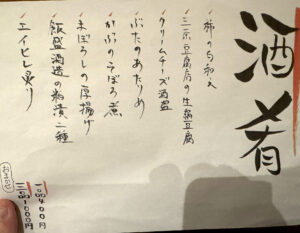 酒肴
・柿の白和え
・三京豆腐店の生絹豆腐
・クリームチーズ酒盗
・ぶたのあたりめ
・かぶのそぼろ煮
・まぼろしの厚揚げ
・飯盛酒造の粕漬二種
・エイヒレ炙り
一品400円
三品1000円